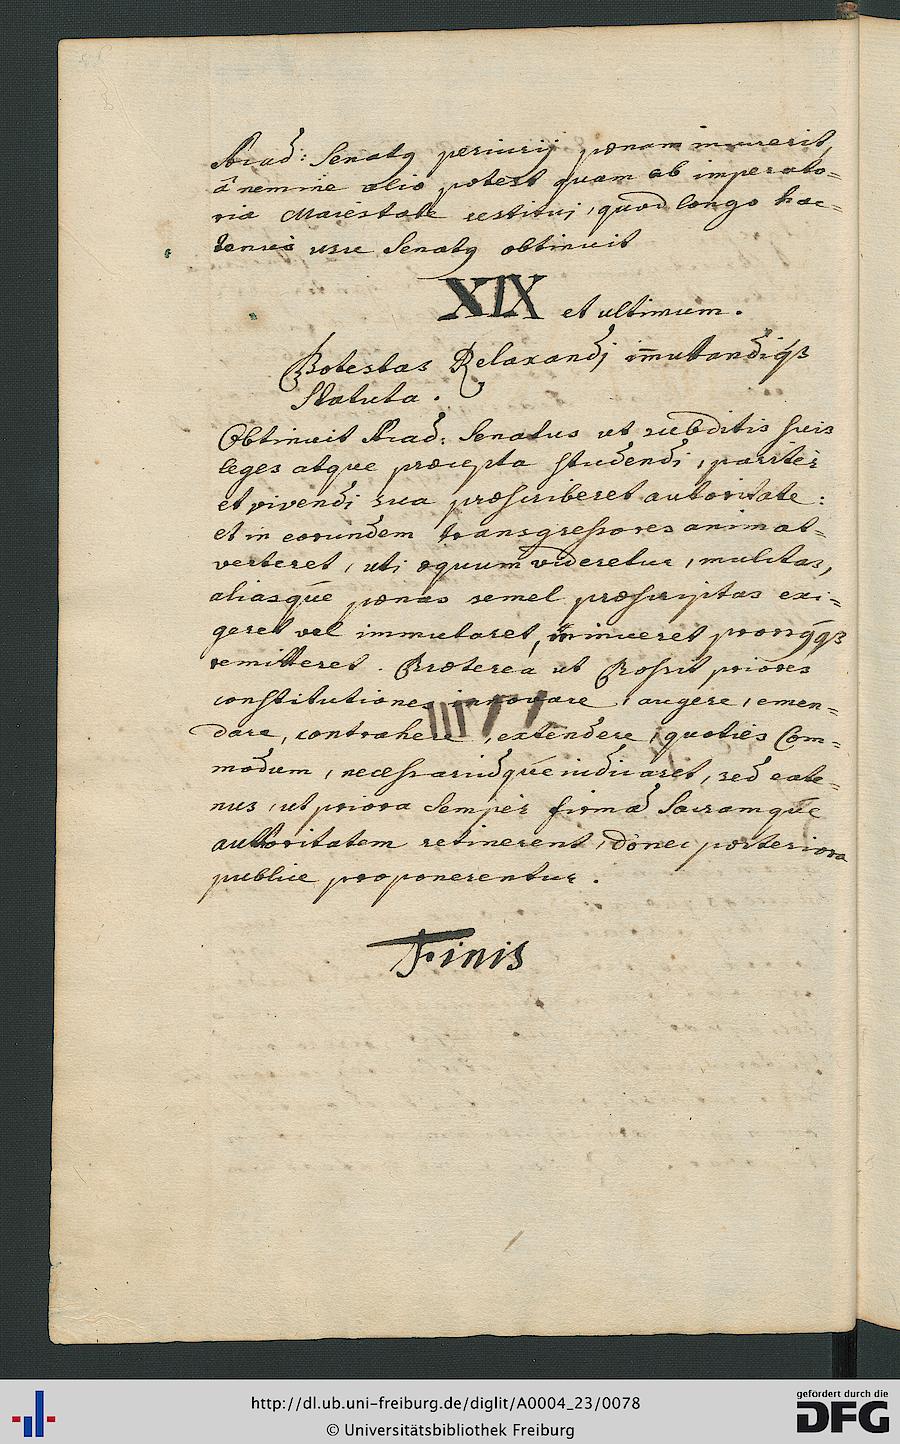 Acad: Senatq periurij pœnam incurerit,
â nemine alio potest quam ab imperato=
ria Maiestate restitui, quod longo hac=
tenus usu Senatq obtinuit
XIX et ultimum.
Potestas Relaxandj im̄utandiq́ʒ
Statuta.
Obtinuit Acad: Senatus ut subditis suis
leges atque præcepta studendi, pariter
et vivendi sua præscriberet autoritate:
et in eorundem transgressores animat=
verteret, uti æquum videretur, mulctas,
aliasque pœnas semel præscriptas exi=
geret vel immutaret, minueret
remitteret. Præterea ut Possit priores
constitutiones innovare, augere, emen=
dare, contrahere, extendere, quoties Com=
modum, necessariudque iudicaret, sed eate=
nus, ut priora semper firmâ Sacramque
authoritatem retinerent, donec posteriora
publice proponerentur.
Finis
http://dl.ub.uni-freiburg.de/diglit/A0004_23/0078
© Universitätsbibliothek Freiburg
gefördert durch die
DFG